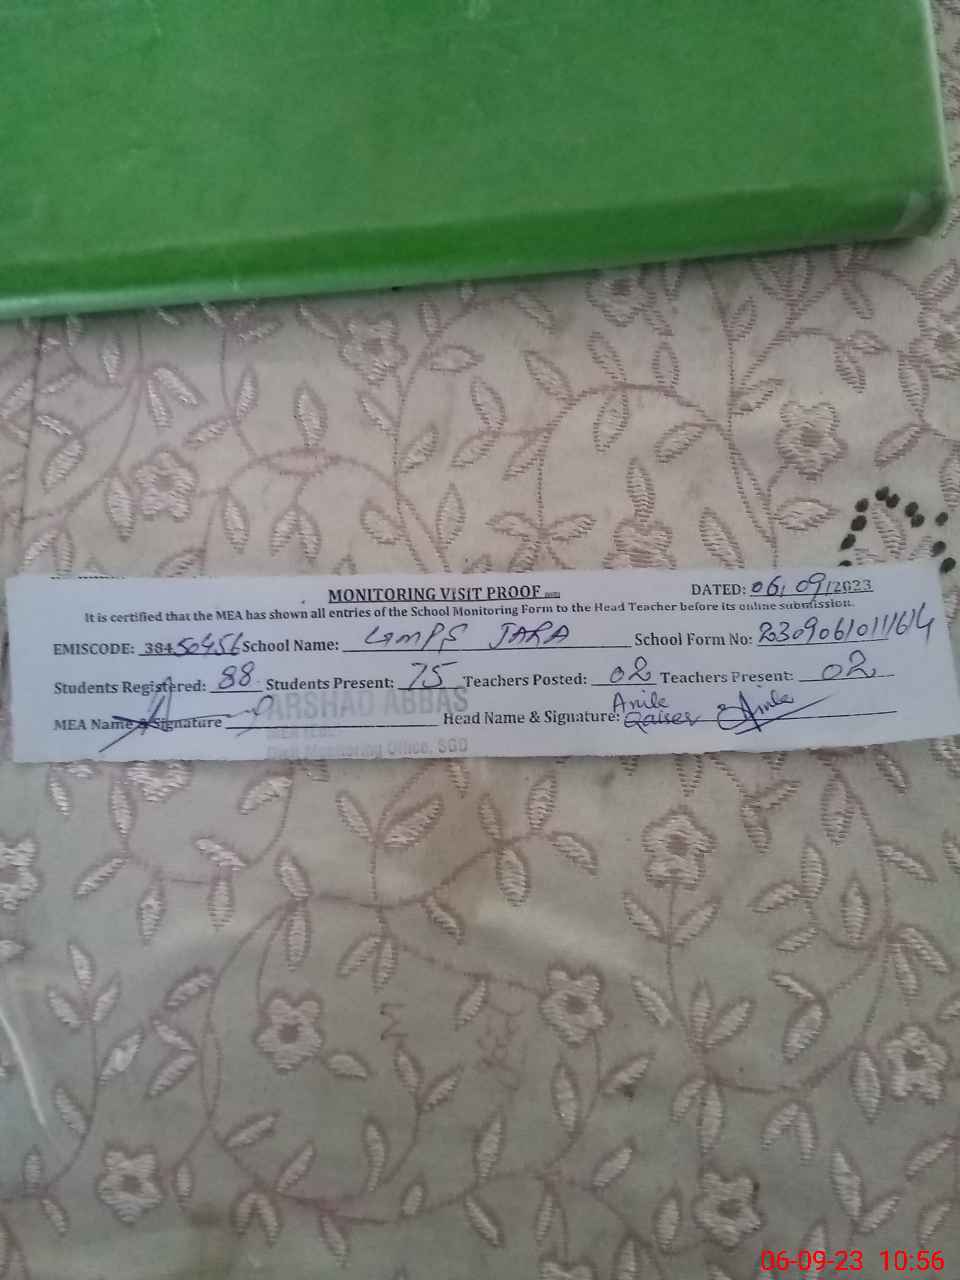 MONITORING VISIT PROOF
DATED: 06/09/2023
It is certified that the MEA has shown all entries of the School Monitoring Form to the Head Teacher before its online submission.
EMISCODE: 38450456 School Name: GMPS JARA School Form No:
Students Registered: 88 Students Present: 75 Teachers Posted: 02 Teachers Present: 02
MEA Name & Signature ARSHAD ABBAS Head Name & Signature: Anila Qaiser Anila
Monitoring Office, SGD
06-09-23 10:56